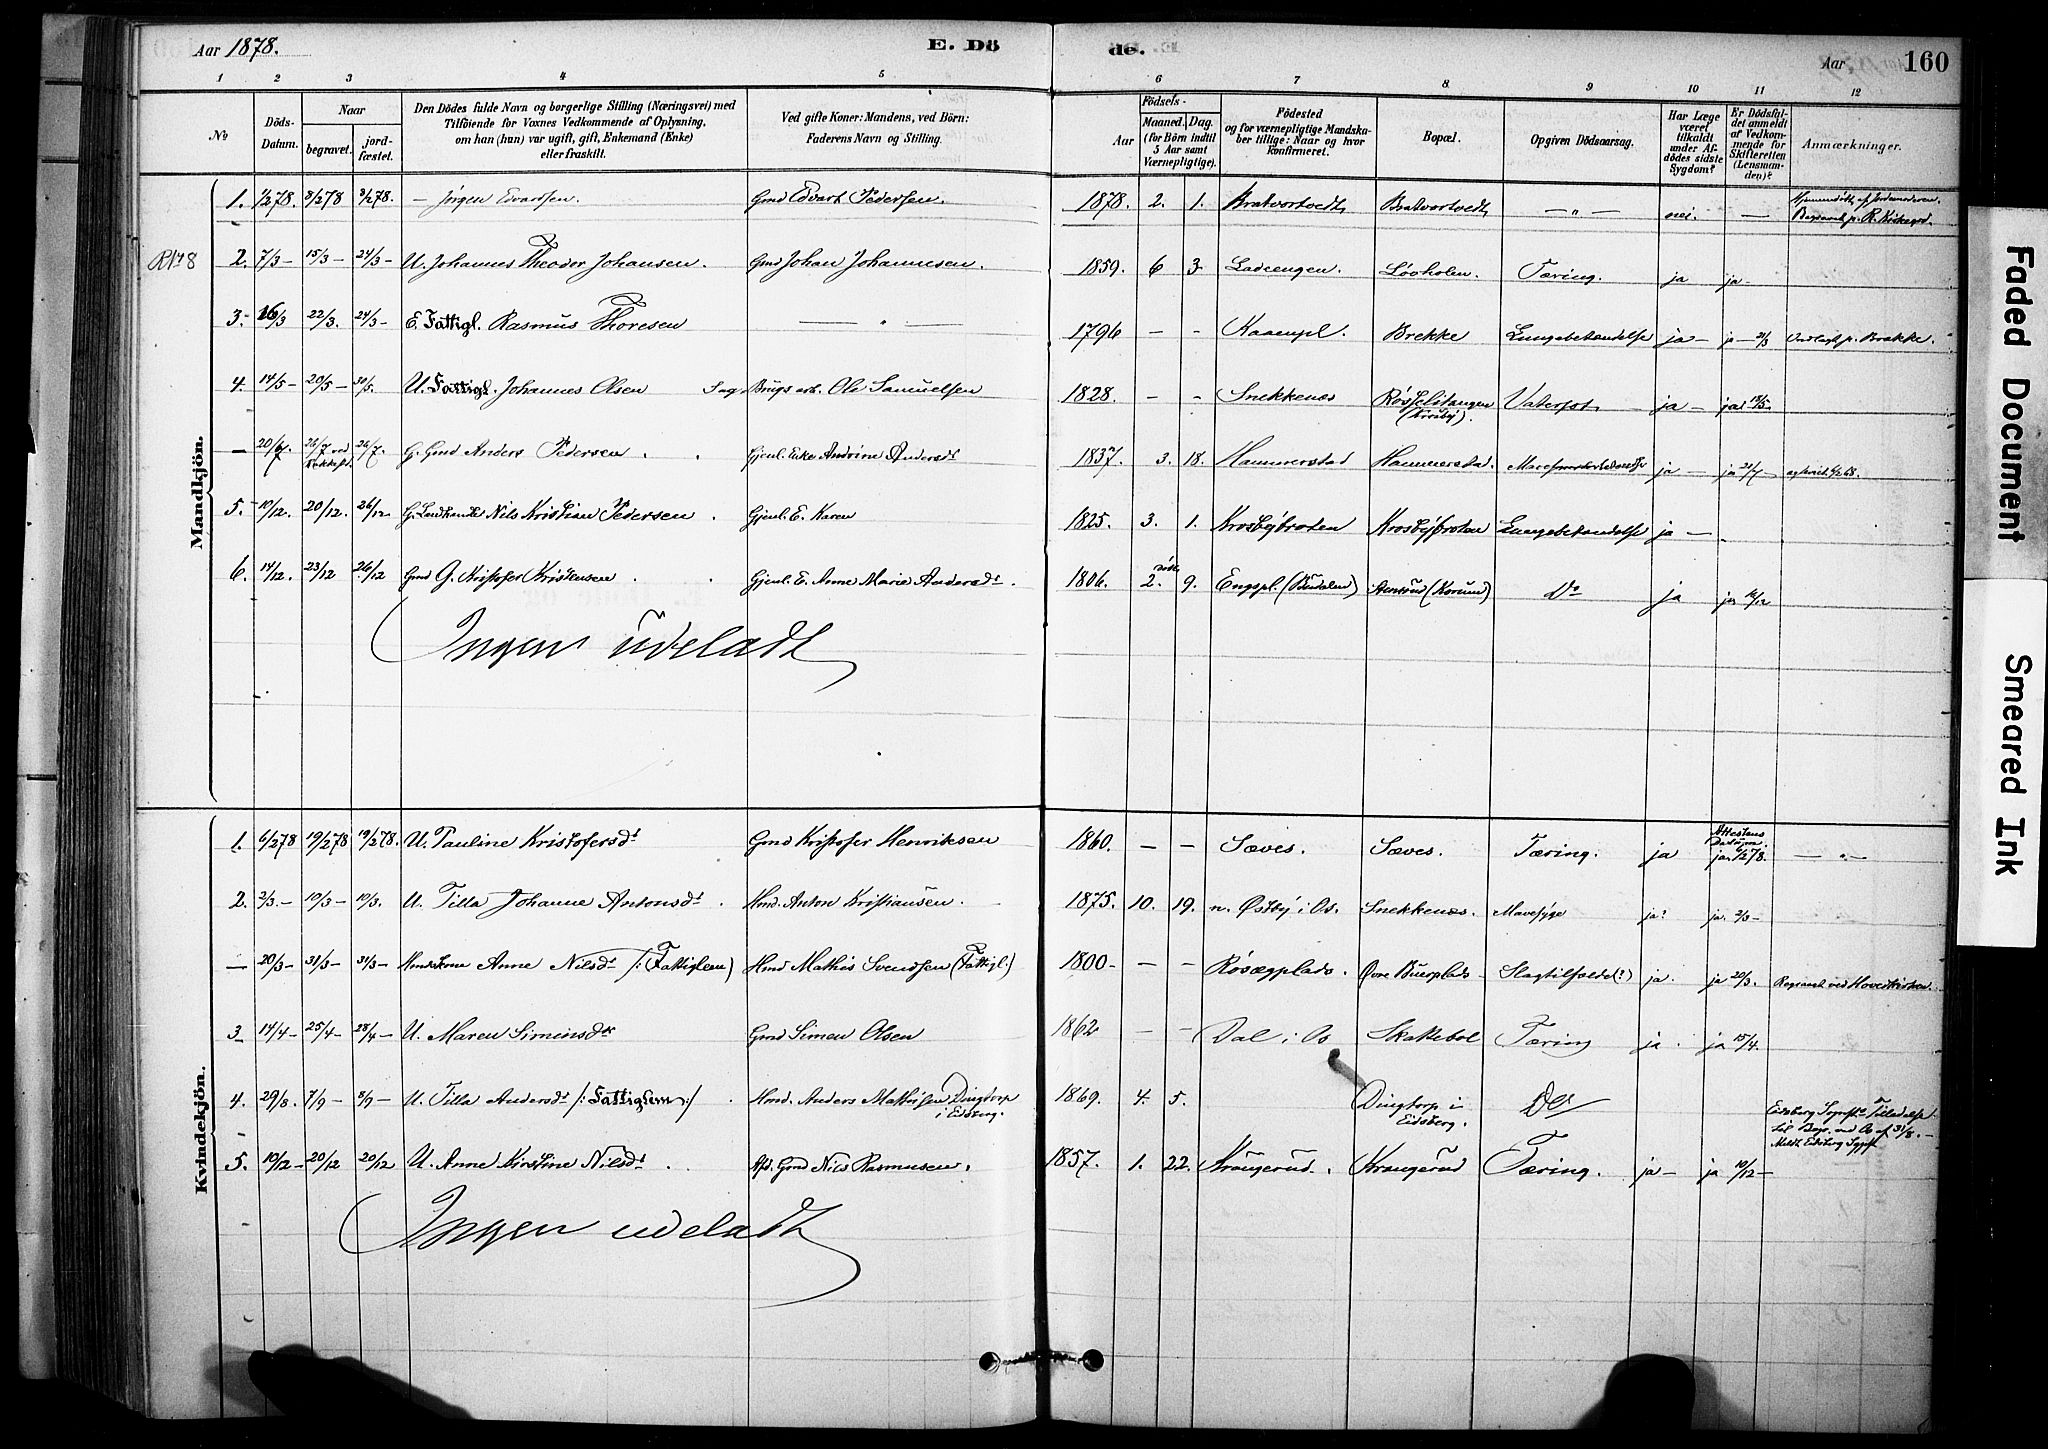 Aar 1878.
E. Dö
de.
Aar
160
1 2 3 4 5 6 7 8 9 10 11 12
No
Döds-Datum.
Naar
begravet.
jord-fæstet.
Den Dödes fulde Navn og borgerlige Stilling (Næringsvei) med
Tilföiende for Voxnes Vedkommende af Oplysning,
om han (hun) var ugift, gift, Enkemand (Enke)
eller fraskilt.
Ved gifte Koner: Mandens, ved Börn:
Faderens Navn og Stilling.
Födsels-
Aar
Maaned. Dag.
(for Börn indtil
5 Aar samt
Værnepligtige).
Födested
og for værnepligtige Mandska-
ber tillige: Naar og hvor
konfirmeret.
Bopæl.
Opgiven Dödsaarsag.
Har Læge
været
tilkaldt
under Af-
dödes sidste
Sygdom?
Er Dödsfal-
det anmeldt
af Vedkom-
mende for
Skifteretten
(Lensman-
den)?
Anmærkninger.
Mandkjön.
1. 1/2 78. 3/2 78 3/2 78. — Jörgen Edvardsen. Gmd Edvart Pedersen. 1878. 2. 1. Bratvortvedt, Bratvortvedt, — „ — nei. —
2. 7/3 — 15/3 — 24/3 — U. Johannes Theodor Johansen. Gmd Johan Johannesen. 1859. 6 3. Ladeengen. Lövholen. Tæring. ja ja —
3. 16/3 22/3. 24/3 — E. Fattigl. Rasmus Thoresen — „ — 1796 — — Kaaenpl. Brekke Lungebetændelse ja — ja — 21/3 p. Brække.
4. 14/5 — 20/5 — 30/5. U. Fattigl. Johannes Olsen Sag Brugs arb. Ole Samuelsen 1828. — — Snekkenæs Röselitangen Vatersot, — ja —
— 20/7. 26/7 ved 26/7. G. Gmd Anders Pedersen. Gjenl. Enke Andrine Andersdt 1837. 3. 18. Hammerstad Hammerstad. ja —
5. 10/12. 20/12. 26/12. G. Nils Kristian Pedersen. Gjenl. E. Karen 1825. 3. 1. Krosbybraten Krosbybraten Lungebetændelse ja —
6. 14/12. 23/12 26/12 Gmd G. Kristofer Kristensen. Gjenl. E. Anne Marie Andersdt. 1806. 2. 9. Engspl. (Budalen) Do ja
Ingen udeladt
Kvindekjön.
1. 6/2 78 19/2 78 19/2 78. U. Pauline Kristofersdt Gmd Kristofer Henriksen 1860. — — Sæves. Sæves. Tæring. ja ja 6/2 78. — „ —
2. 2/3. — 10/3 — 10/3. U. Tilla Johanne Antonsdt. Hmd. Anton Kristiansen. 1875. 10. 19. n. Østby i Os. Snekkenæs. Mavesyge ja? ja. 2/3 —
— 20/3 — 31/3 — 31/3 — Anne Nilsdt /: Fattiglem) Hmd Mathis Svendsen (Fattigl.) 1800 — — — Rösægplads. Övre Buerplads Slagtilfælde(?) ja. ja 20/3. ved Hovedkirken.
3 14/4 — 25/4 — 28/4 — U. Maren Simensdt Gmd Simen Olsen 1862 — — Dal i Os Skakkebol Tæring ja. ja 15/4.
4. 29/8. 7/9 — 8/9 — U. Tilla Andersdt /: Fattiglem :/ Hmd. Anders Mathisen Dingtorp
i Eidsberg. 1869. 4. 5. Dingtorp i
Eidsberg. Do
5. 10/12 — 20/12 20/12 U. Anne Kirstine Nilsdt. Afd. Gmd Nils Rasmusen. 1857. 1. 22. Krougerud. Krougerud Tæring. ja — ja 10/12 —
Ingen udeladt
Faded Document
Smeared Ink